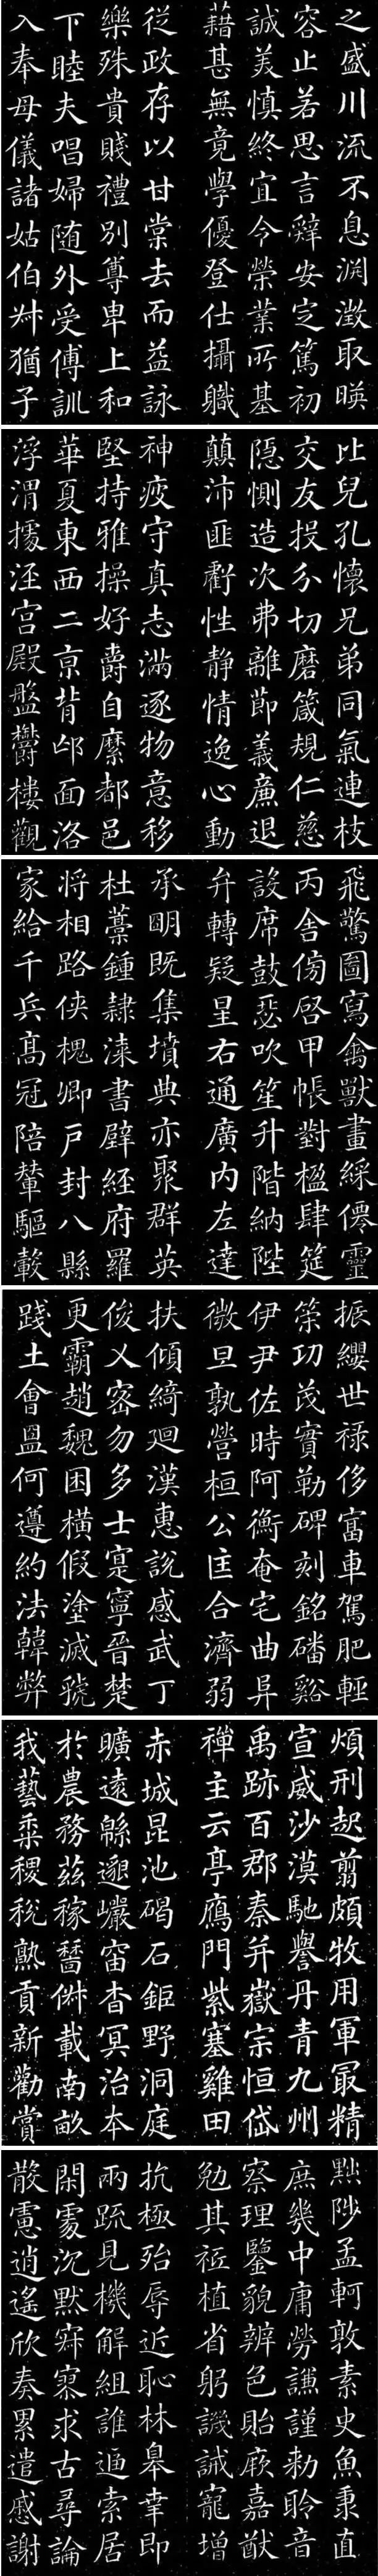 之盛川流不息渊澂取暎
容止若思言辭安定篤初
誠美慎終宜令榮業所基
藉甚無竟學優登仕攝職
從政存以甘棠去而益詠
樂殊貴賤禮別尊卑上和
下睦夫唱婦随外受傅訓
入奉母儀諸姑伯叔猶子
比兒孔懷兄弟同氣連枝
交友投分切磨箴規仁慈
隐惻造次弗離節義廉退
顛沛匪虧性静情逸心動
神疲守真志滿逐物意移
堅持雅操好爵自縻都邑
華夏東西二京背邙面洛
浮渭據泾宫殿盤欝楼觀
飛驚圖寫禽獸畫綵僊靈
丙舍傍啓甲帳對楹肆筵
設席鼓瑟吹笙升階納陛
弁轉疑星右通廣内左達
承明既集墳典亦聚群英
杜藁鍾隷漆書壁經府羅
将相路侠槐卿戶封八縣
家給千兵高冠陪輦驅轂
振纓世禄侈富車駕肥輕
策功茂實勒碑刻銘磻谿
伊尹佐時阿衡奄宅曲阜
微旦孰營桓公匡合濟弱
扶傾綺迴漢惠説感武丁
俊乂密勿多士寔寧晉楚
更霸趙魏困橫假塗滅虢
踐土會盟何遵約法韓弊
煩刑起翦頗牧用軍最精
宣威沙漠馳譽丹青九州
禹跡百郡秦并嶽宗恒岱
禪主云亭鴈門紫塞雞田
赤城昆池碣石鉅野洞庭
曠遠緜邈巖岫杳冥治本
於農務茲稼穡俶載南畝
我藝黍稷稅熟貢新勸賞
黜陟孟軻敦素史魚秉直
庶幾中庸勞謙謹勑聆音
察理鑒貌辨色貽厥嘉猷
勉其祗植省躬譏誡寵增
抗極殆辱近恥林皋幸即
兩疏見機解組誰逼索居
閑處沉默寂寥求古尋論
散慮逍遙欣奏累遣慼謝